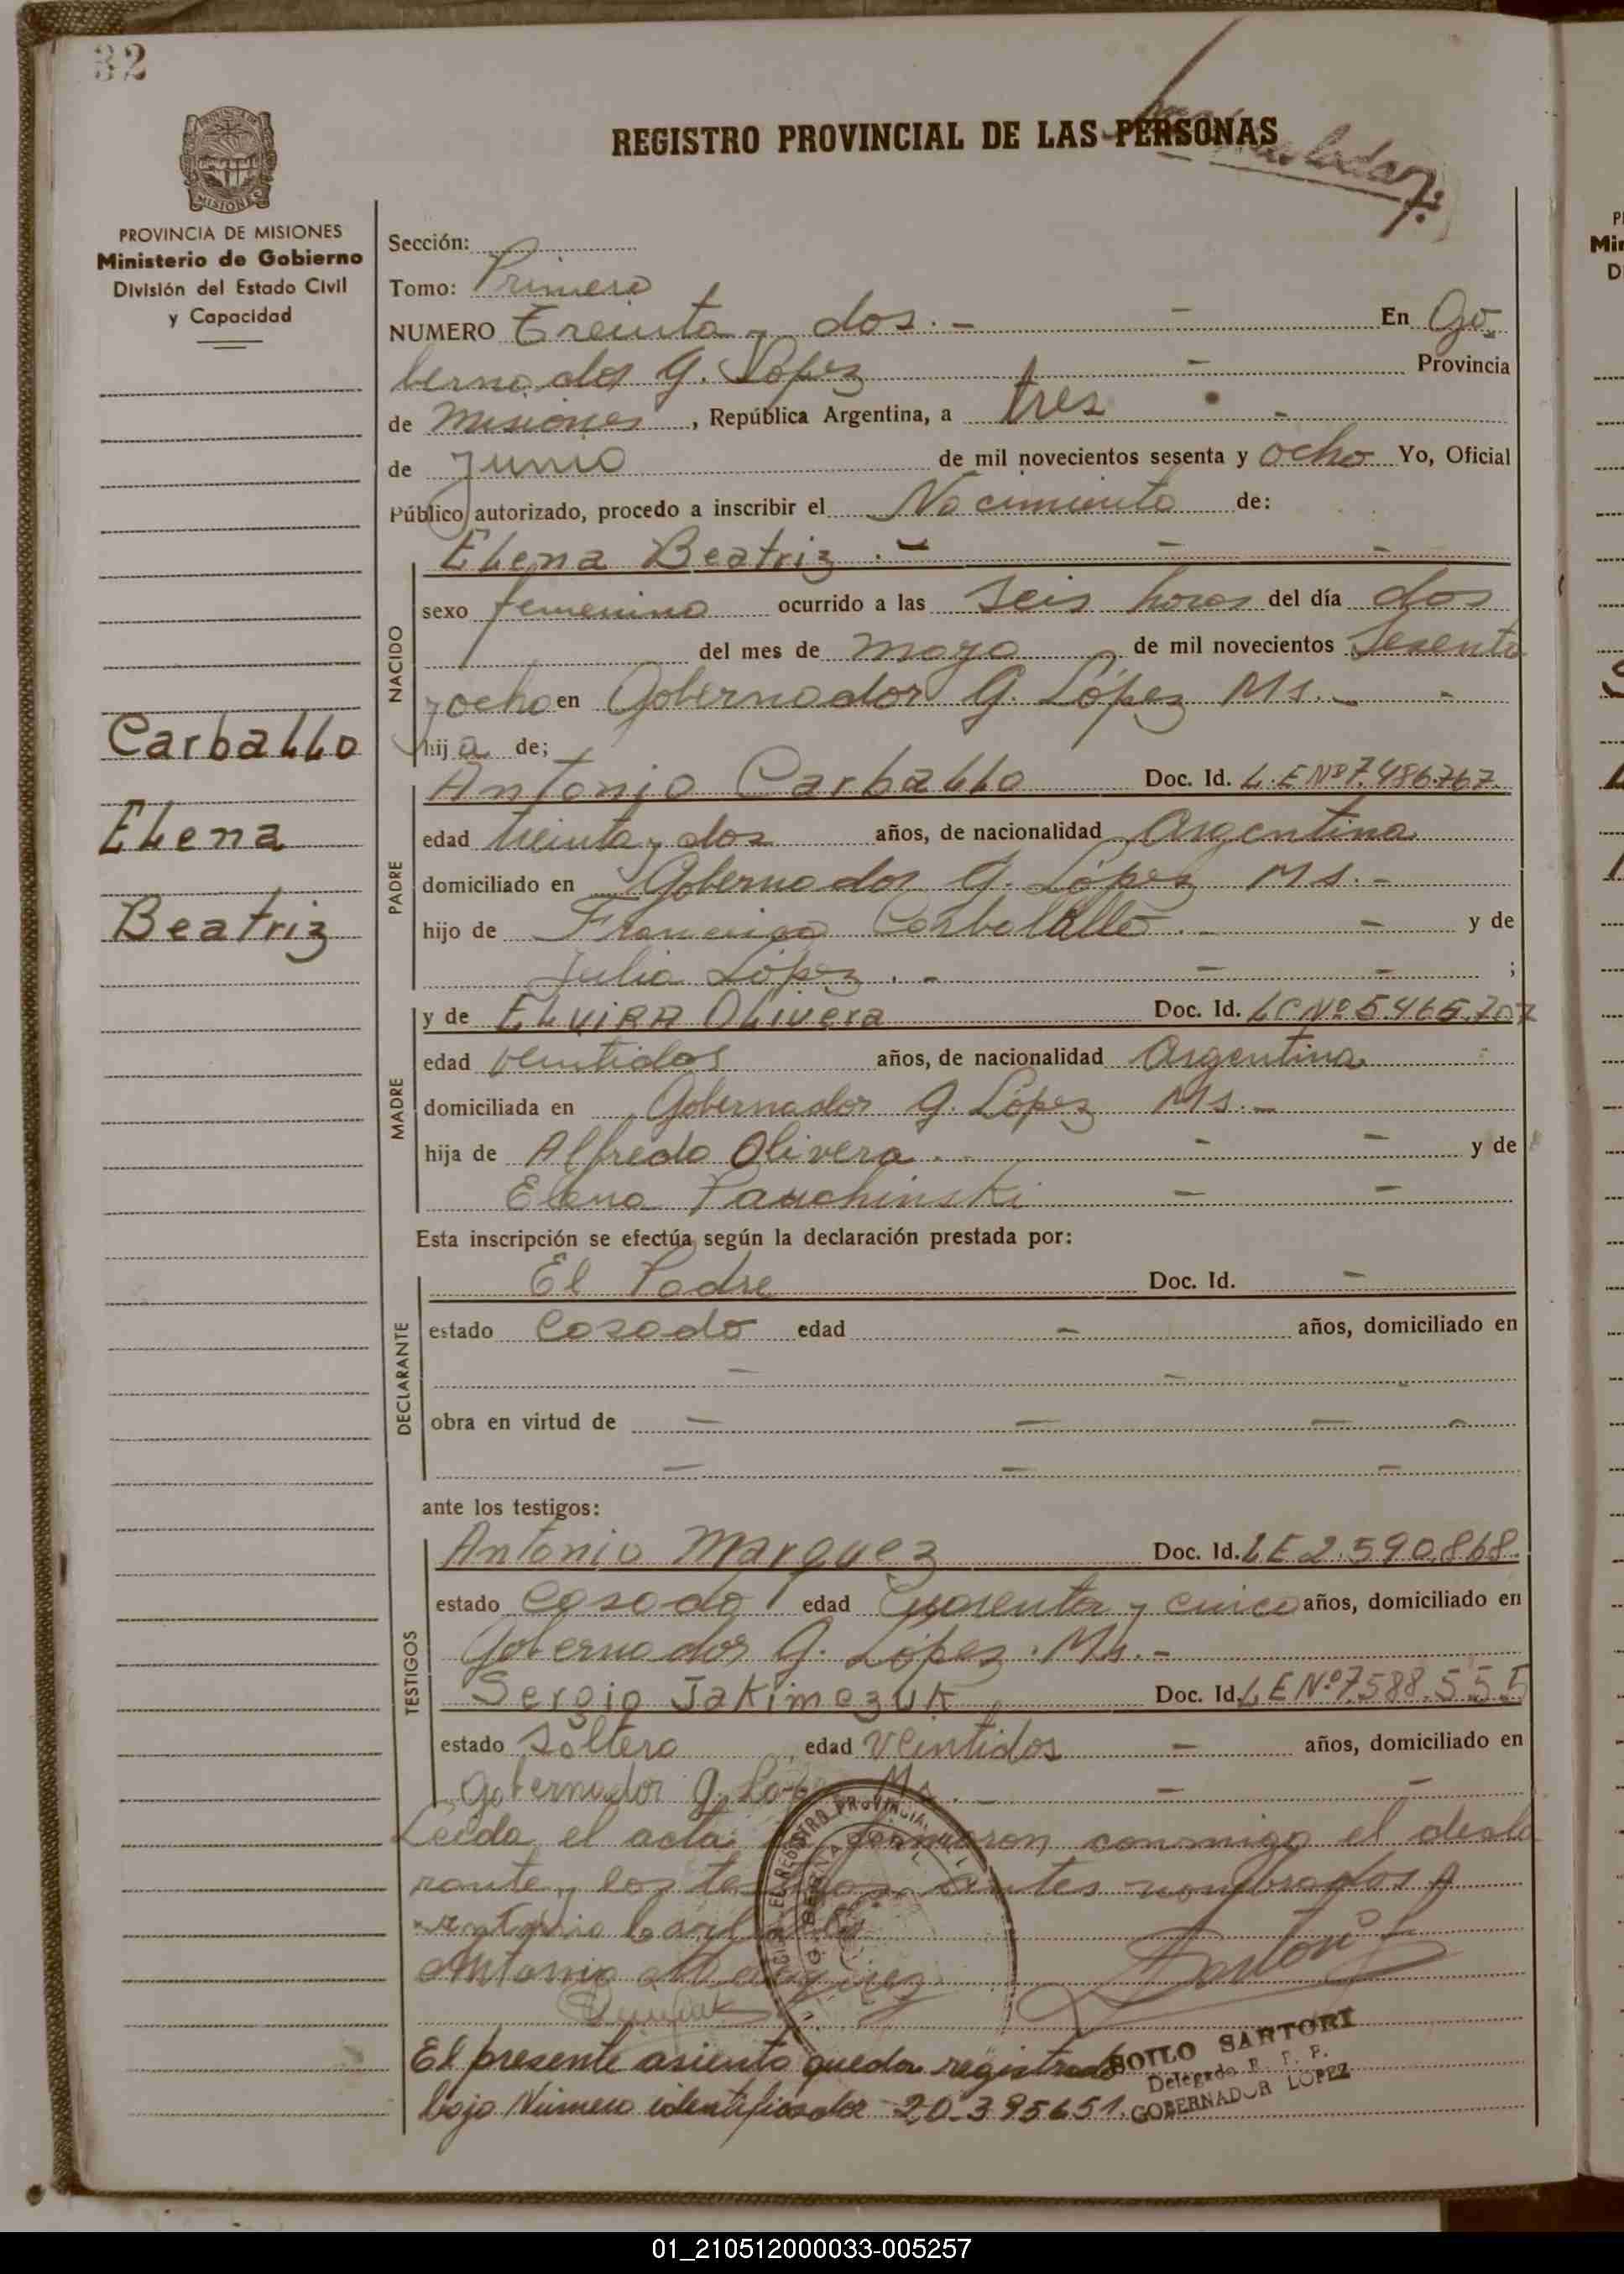 32
REGISTRO PROVINCIAL DE LAS PERSONAS
PROVINCIA DE MISIONES
Ministerio de Gobierno
División del Estado Civil
y Capacidad
Carballo
Elena
Beatriz
Sección:
Tomo: Primero
NUMERO Treinta y dos. - - En Go
bernador G. López - Provincia
de Misiones, República Argentina, a tres -
de Junio de mil novecientos sesenta y ocho Yo, Oficial
Público autorizado, procedo a inscribir el Nacimiento de:
Elena Beatriz. - - -
NACIDO
sexo femenino ocurrido a las seis horas del día dos
del mes de mayo de mil novecientos sesenta
y ocho en Gobernador G. López Ms. - -
hija de;
PADRE
Antonio Carballo Doc. Id. L.E Nº 7.486.767
edad treinta y dos años, de nacionalidad Argentina
domiciliado en Gobernador G. López Ms. -
hijo de Francisco . - - y de
Julia López . - - - ;
MADRE
y de Elvira Olivera Doc. Id. LC Nº 5.465.707
edad veintidos años, de nacionalidad Argentina
domiciliada en Gobernador G. López Ms. -
hija de Alfredo Olivera . - - - y de
Elena - -
Esta inscripción se efectúa según la declaración prestada por:
DECLARANTE
El Padre Doc. Id. -
estado Casado edad - años, domiciliado en
- - -
obra en virtud de - - - -
- - -
ante los testigos:
TESTIGOS
Antonio Marquez Doc. Id. LE 2.590.868
estado Casado edad Cuarenta y cinco años, domiciliado en
Gobernador G. López. Ms. -
Sergio Jakimczuk Doc. Id. LE Nº 7.588.555
estado Soltero edad veintidos - años, domiciliado en
Gobernador G. López Ms. - - -
Leída el acta la firmaron conmigo el decla
rante y los testigos antes nombrados
Antonio Carballo
Antonio Marquez
El presente asiento queda registrado
bajo Número identificador 20.395651.
ZOILO SARTORI
Delegado R. P. P.
GOBERNADOR LOPEZ
01_210512000033-005257